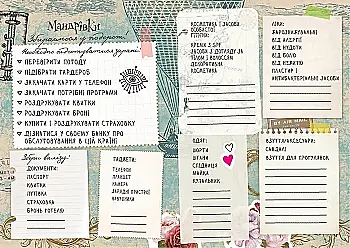 Мандрівки
Збираємося у подорож.
Необхідно підготуватися заздалегідь:
ПЕРЕВІРИТИ ПОГОДУ
ПІДІБРАТИ ГАРДЕРОБ
ЗАКАЧАТИ КАРТИ У ТЕЛЕФОН
ЗАКАЧАТИ ПОТРІБНІ ПРОГРАМИ
РОЗДРУКУВАТИ КВИТКИ
РОЗДРУКУВАТИ БРОНІ
КУПИТИ І РОЗДРУКУВАТИ СТРАХОВКУ
ДІЗНАТИСЯ У СВОЄМУ БАНКУ ПРО
ОБСЛУГОВУВАННЯ В ЦІЙ КРАЇНІ
КОСМЕТИКА І ЗАСОБИ
ОСОБИСТОЇ
ГІГІЄНИ:
КРЕМИ З SPF
ЗАСОБИ З ДОГЛЯДУ ЗА
ТІЛОМ І ВОЛОССЯМ
ДЕКОРАТИВНА
КОСМЕТИКА
ЛІКИ:
ЖАРОЗНИЖУВАЛЬНІ
ВІД АЛЕРГІЇ
ВІД НУДОТИ
ВІД БОЛЮ
ВІД НЕЖИТЮ
ПЛАСТИР І
АНТИБАКТЕРІАЛЬНІ ЗАСОБИ
BY AIR MAIL
ДОКУМЕНТИ:
ПАСПОРТ
КВИТКИ
ПУТІВКА
СТРАХОВКА
БРОНЬ ГОТЕЛЮ
ГАДЖЕТИ:
ТЕЛЕФОН
ПЛАНШЕТ
КАМЕРА
ЗАРЯДНІ ПРИСТРОЇ
НАВУШНИКИ
ОДЯГ:
ШОРТИ
ШТАНИ
СПІДНИЦЯ
МАЙКА
КУПАЛЬНИК
ВЗУТТЯ/АКСЕСУАРИ:
САНДАЛІ
ВЗУТТЯ ДЛЯ ПРОГУЛЯНОК